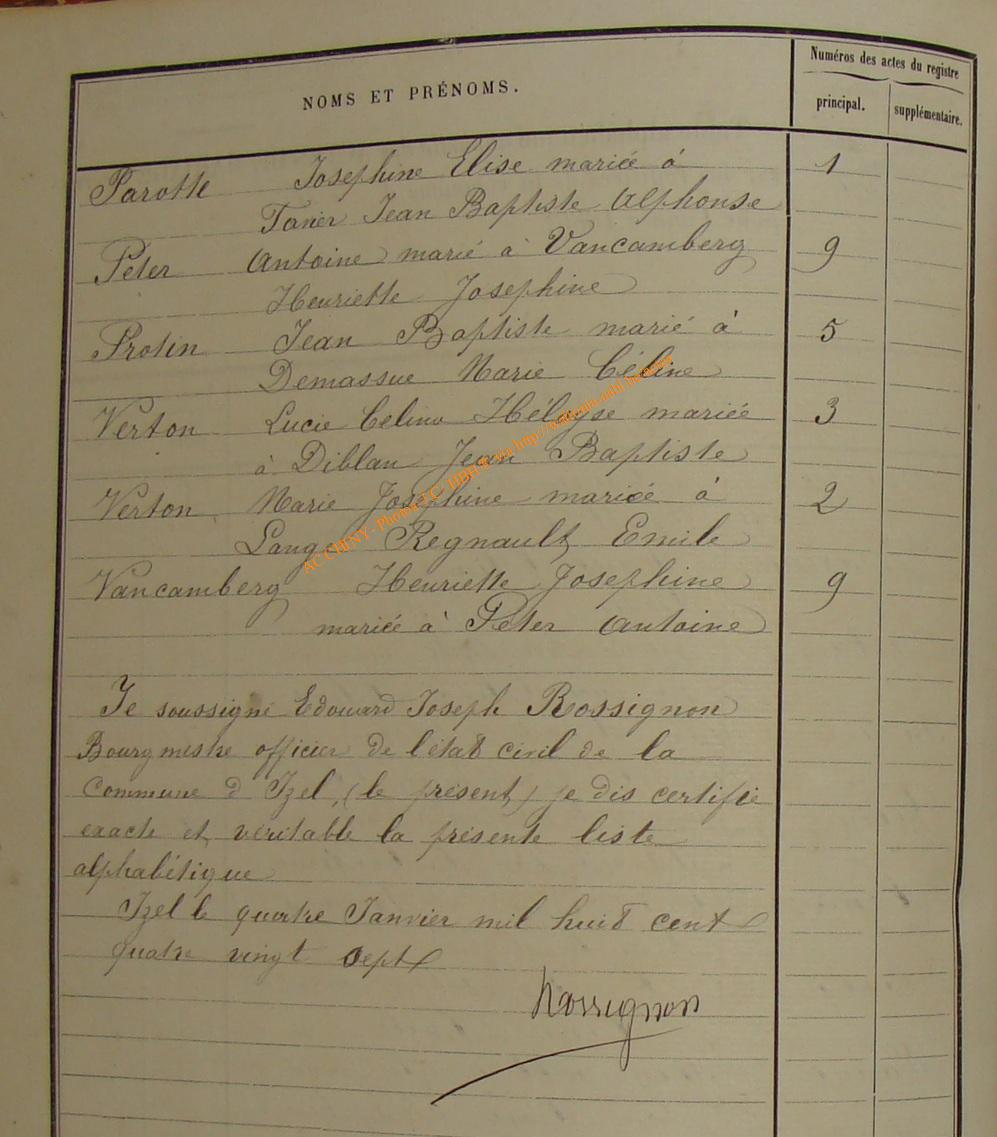 NOMS ET PRÉNOMS.
Numéros des actes du registre
principal.
supplémentaire.
Parotte Josephine Elise mariée à 1
Tanier Jean Baptiste Alphonse
Péter Antoine marié à Vancamberg 9
Henriette Josephine
Protin Jean Baptiste marié à 5
Demassue Marie Céline
Verton Lucie Celina mariée 3
à Diblan Jean Baptiste
Verton Marie Joséphine mariée à 2
Regnault Emile
Vancamberg Henriette Josephine 9
mariée à Péter Antoine
Je soussigné Edouard Joseph Rossignon
Bourgmestre officier de l'état civil de la
Commune d Izel, (le présent) je dis certifie
exacte et véritable la présente liste
alphabétique
Izel le quatre Janvier mil huit cent
quatre vingt sept
Rossignon
ACCHINY - Photos